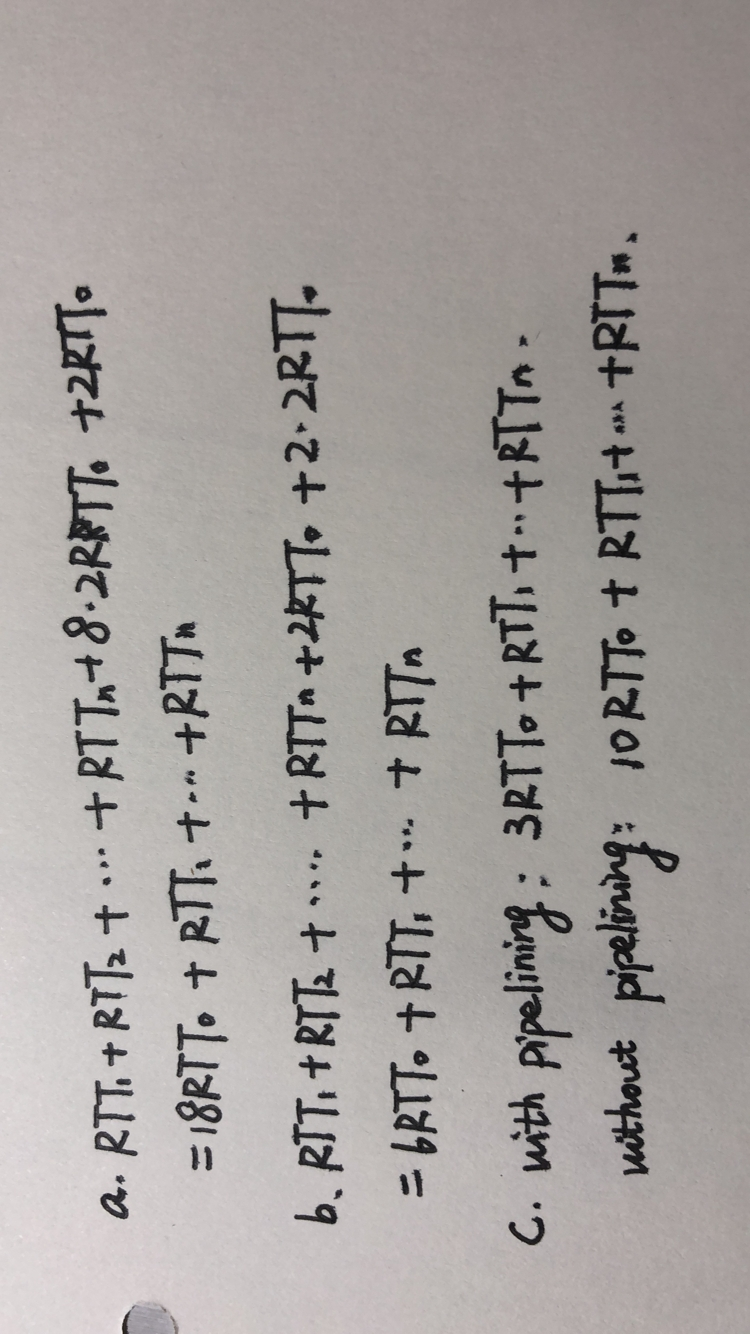 a. RTT₁+RTT₂+...+RTTₙ+8·2RTT₀+2RTT₀
=18RTT₀+RTT₁+...+RTTₙ
b. RTT₁+RTT₂+....+RTTₙ+2RTT₀+2·2RTT₀
=6RTT₀+RTT₁+...+RTTₙ
C. with pipelining: 3RTT₀+RTT₁+...+RTTₙ.
without pipelining: 10RTT₀+RTT₁+...+RTTₙ.